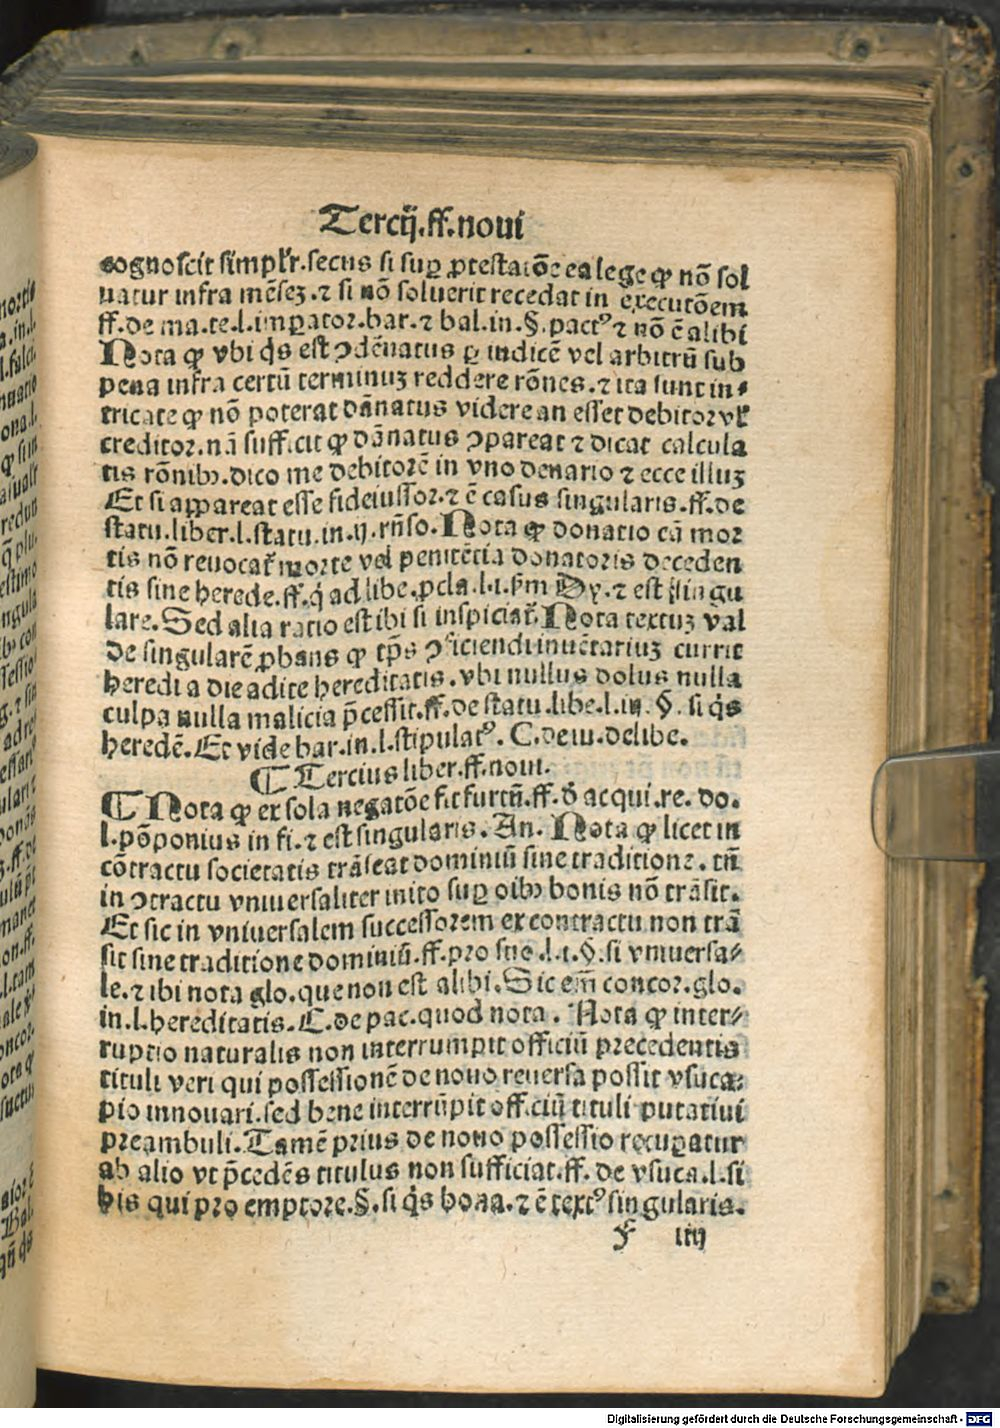 Tercij.ff.noui
cognoscit simplr̃.secus si suꝑ ꝓtestatōe ea lege ꝙ nō sol
uatur infra mēseꝫ.⁊ si nō soluerit recedat in executōem
ff.de ma.te.l.imꝑator.bar.⁊ bal.in.§.pactꝰ ⁊ nō ē alibi
Nota ꝙ vbi q̇s est ↄdēnatus ꝑ iudicē vel arbitrū sub
pena infra certū terminuꝫ reddere rōnes.⁊ ita sunt in⸗
tricate ꝙ nō poterat dānatus videre an esset debitor vl̛
creditor.nā sufficit ꝙ dānatus ↄpareat ⁊ dicat calcula
tis rōnibꝰ.dico me debitorē in vno denario ⁊ ecce illuꝫ
Et si appareat esse fideiussor.⁊ ē casus singularis.ff.de
statu.liber.l.statu.in.ij.rn̄so.Nota ꝙ donatio cā mor
tis nō reuocat̛ morte vel penitētia donatoris deceden
tis sine herede.ff.q̇ ad libe.ꝓcla.l.i.ẜm Dy.⁊ est singu
lare.Sed alia ratio est ibi si inspiciat̛.Nota textuꝫ val
de singularē ꝓbans ꝙ tp̄s ↄficiendi inuētariuꝫ currit
heredi a die adite hereditatis.vbi nullus dolus nulla
culpa nulla malicia p̄cessit.ff.de statu.libe.l.iij.§.si q̇s
heredē.Et vide bar.in.l.stipulatꝰ.C.de iu.delibe.
¶ Tercius liber.ff.noui.
¶ Nota ꝙ ex sola negatōe fit furtū.ff.ď acqui.re.do.
l.pōponius in fi.⁊ est singularis.An. Nota ꝙ licet in
cōtractu societatis trāseat dominiū sine traditione.tn̄
in ↄtractu vniuersaliter inito suꝑ oibꝰ bonis nō trāsit.
Et sic in vniuersalem successorem ex contractu non trā
sit sine traditione dominiū.ff.pro suo.l.i.§.si vniuersa⸗
le.⁊ ibi nota glo.que non est alibi.Sic em̄ concor.glo.
in.l.hereditatis.C.de pac.quod nota. Nota ꝙ inter⸗
ruptio naturalis non interrumpit officiū precedentis
tituli veri qui possessionē de nouo reuersa possit vsuca⸗
pio innouari.sed bene interrūpit officiū tituli putatiui
preambuli.Tamē prius de nouo possessio recuꝑatur
ab alio vt p̄cedēs titulus non sufficiat.ff.de vsuca.l.si
his qui pro emptore.§.si q̇s bona.⁊ ē textꝰ singularis.
f iiij
Digitalisierung gefördert durch die Deutsche Forschungsgemeinschaft - DFG